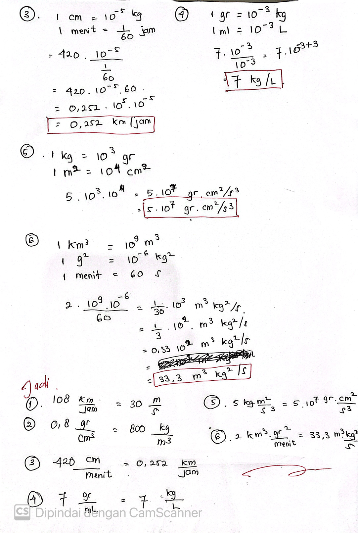 ③ 1 cm = 10⁻⁵ kg
1 menit = 1/60 jam
= 420 . 10⁻⁵ / 1/60
= 420 . 10⁻⁵ . 60
= 0,252 . 10⁵ . 10⁻⁵
= 0,252 km/jam
④ 1 gr = 10⁻³ kg
1 ml = 10⁻³ L
7 . 10⁻³ / 10⁻³ = 7 . 10⁻³⁺³
7 kg/L
⑤ . 1 kg = 10³ gr
1 m² = 10⁴ cm²
5 . 10³ . 10⁴ = 5 . 10⁷ gr . cm²/s³
= 5 . 10⁷ gr . cm²/s³
⑥ 1 km³ = 10⁹ m³
1 g² = 10⁻⁶ kg²
1 menit = 60 s
2 . 10⁹ . 10⁻⁶ / 60 = 1/30 . 10³ m³ kg²/s
= 1/3 . 10² . m³ kg²/s
= 0,33 10² m³ kg²/s
=
= 33,3 m³ kg²/s
Jadi
①. 108 km/jam = 30 m/s
② 0,8 gr/cm³ = 800 kg/m³
③ 420 cm/menit = 0,252 km/jam
④ 7 gr/mL = 7 kg/L
⑤ . 5 kg m²/s³ = 5 . 10⁷ gr . cm²/s³
⑥ . 2 km³ . gr²/menit = 33,3 m³ kg²/s
CS Dipindai dengan CamScanner